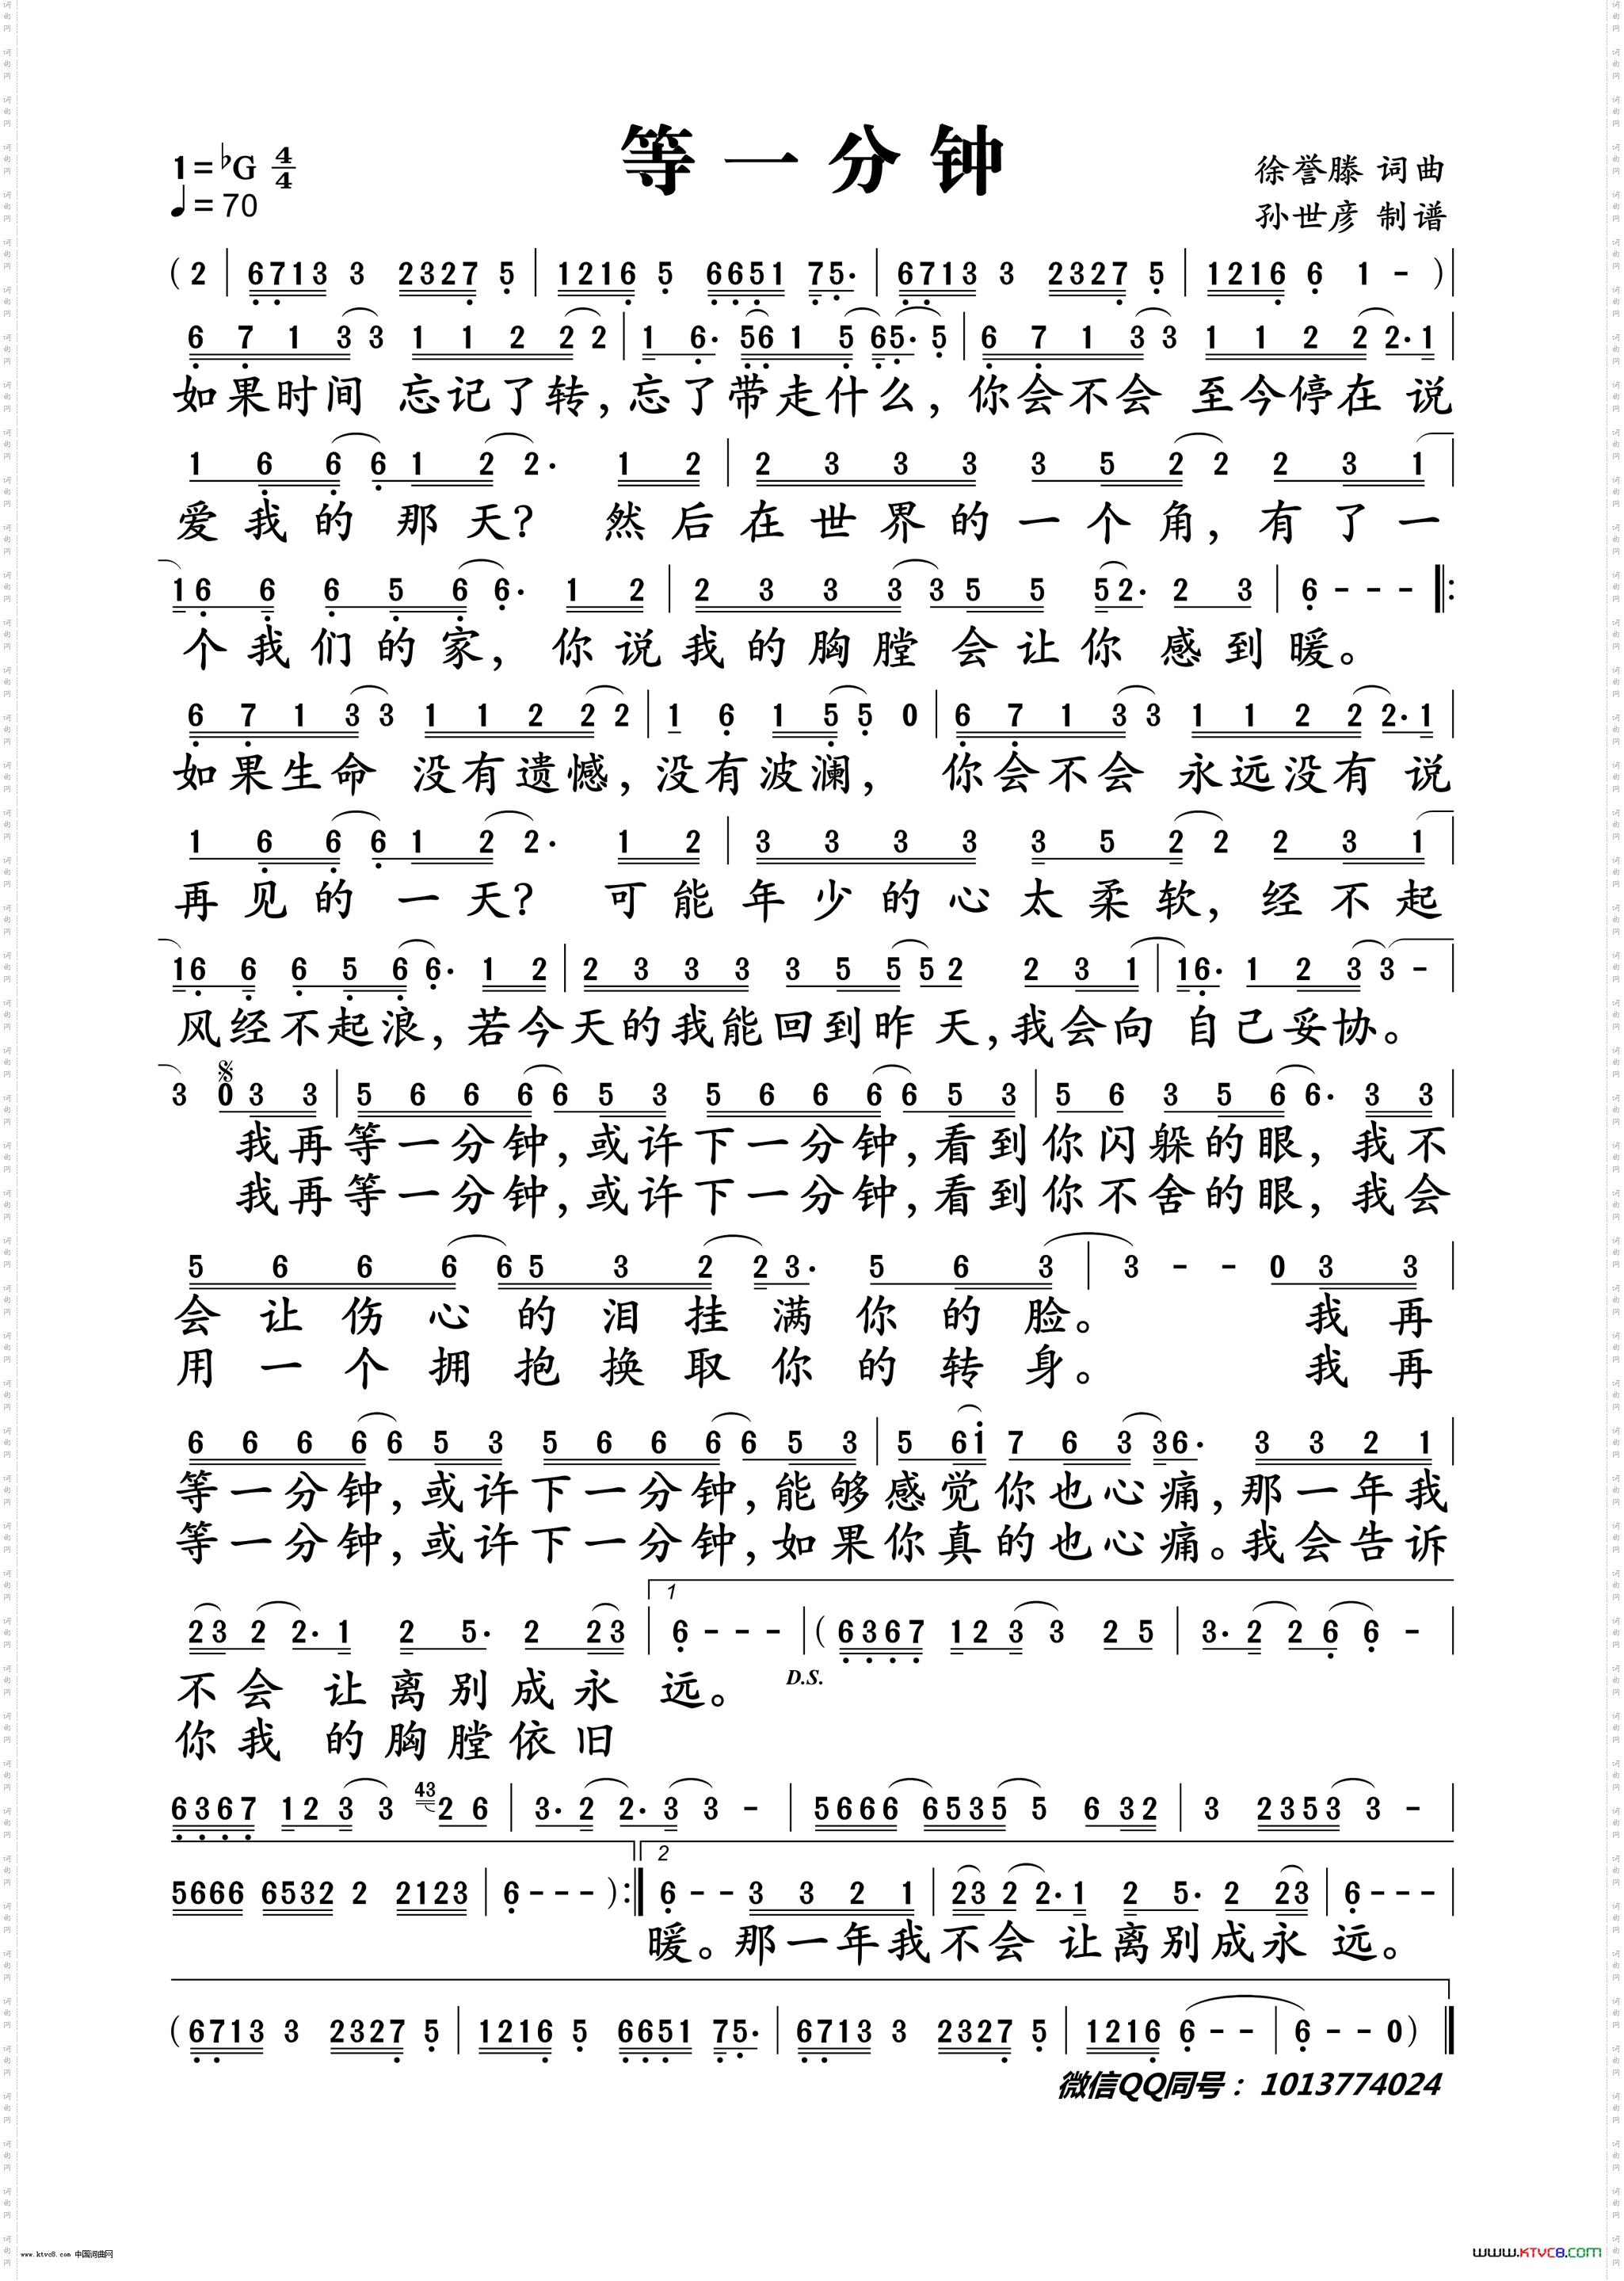 等一分钟
1=♭G 4/4
♩=70
徐誉滕 词曲
孙世彦 制谱
(2 | 6713 3 2327 5 | 1216 5 6651 75. | 6713 3 2327 5 | 1216 6 1 - ) |
6 7 1 3 3 1 1 2 2 2 | 1 6. 56 1 5 65. 5 | 6 7 1 3 3 1 1 2 2 2. 1 |
如果时间 忘记了转,忘了带走什么,你会不会 至今停在 说
1 6 6 6 1 2 2. 1 2 | 2 3 3 3 3 5 2 2 2 3 1 |
爱我的那天? 然后在世界的一个角,有了一
16 6 6 5 6 6. 1 2 | 2 3 3 3 3 5 5 52. 2 3 | 6 - - - ||:
个我们的家,你说我的胸膛会让你感到暖。
6 7 1 3 3 1 1 2 2 2 | 1 6 1 5 5 0 | 6 7 1 3 3 1 1 2 2 2. 1 |
如果生命 没有遗憾,没有波澜, 你会不会 永远没有 说
1 6 6 6 1 2 2. 1 2 | 3 3 3 3 3 5 2 2 2 3 1 |
再见的一天? 可能年少的心太柔软,经不起
16 6 6 5 6 6. 1 2 | 2 3 3 3 3 5 5 5 2 2 3 1 | 16. 1 2 3 3 - |
风经不起浪,若今天的我能回到昨天,我会向 自己妥协。
3 0 3 3 | 5 6 6 6 6 5 3 5 6 6 6 6 5 3 | 5 6 3 5 6 6. 3 3 |
我再等一分钟,或许下一分钟,看到你闪躲的眼,我不
我再等一分钟,或许下一分钟,看到你不舍的眼,我会
5 6 6 6 6 5 3 2 2 3. 5 6 3 | 3 - - 0 3 3 |
会让伤心的泪挂满你的脸。 我再
用一个拥抱换取你的转身。 我再
6 6 6 6 6 5 3 5 6 6 6 6 5 3 | 5 6i 7 6 3 36. 3 3 2 1 |
等一分钟,或许下一分钟,能够感觉你也心痛,那一年我
等一分钟,或许下一分钟,如果你真的也心痛。我会告诉
1
23 2 2. 1 2 5. 2 23 | 6 - - - | (6367 12 3 3 2 5 | 3. 2 2 6 6 - |
D.S.
不会 让离别成永 远。
你我 的胸膛依旧
6367 12 3 3 43 2 6 | 3. 2 2. 3 3 - | 5666 6535 5 6 32 | 3 2353 3 - |
2
5666 6532 2 2123 | 6 - - - ) :|| 6 - - 3 3 2 1 | 23 2 2. 1 2 5. 2 23 | 6 - - - |
暖。那一年我不会 让离别成永 远。
(6713 3 2327 5 | 1216 5 6651 75. | 6713 3 2327 5 | 1216 6 - - | 6 - - 0) ||
微信QQ同号:1013774024
www.ktvc8.com 中国词曲网
WWW.KTVC8.COM